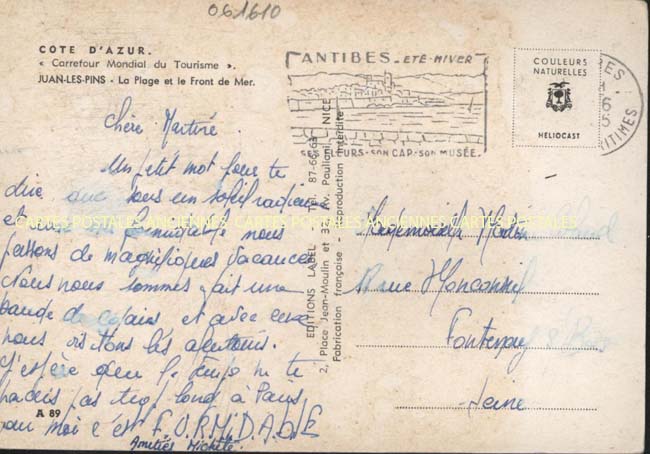 061610
COTE D'AZUR.
« Carrefour Mondial du Tourisme ».
JUAN-LES-PINS - La Plage et le Front de Mer.
ANTIBES - ETE-HIVER
SES FLEURS-SON CAP-SON MUSÉE.
COULEURS
NATURELLES
HELIOCAST
Chère Martine.
Un petit mot pour te
dire que sous un soleil radieux
et nous
passons de magnifiques vacances
Nous nous sommes fait une
bande de copains et avec eux
nous visitons les alentours.
J'espère que le temps ne te
paraît pas trop long à Paris
pour moi c'est F.O.R.M.I.D.A.B.L.E
Amitiés Michèle.
A 89
CARTES POSTALES ANCIENNES CARTES POSTALES ANCIENNES CARTES POSTALES
EDITIONS LABEL - Tél. 87-69-63
2, Place Jean-Moulin et 37, Av. Pauliani, NICE
Fabrication française - Reproduction interdite
Mademoiselle
rue
Fontenay s/ Bois
Seine